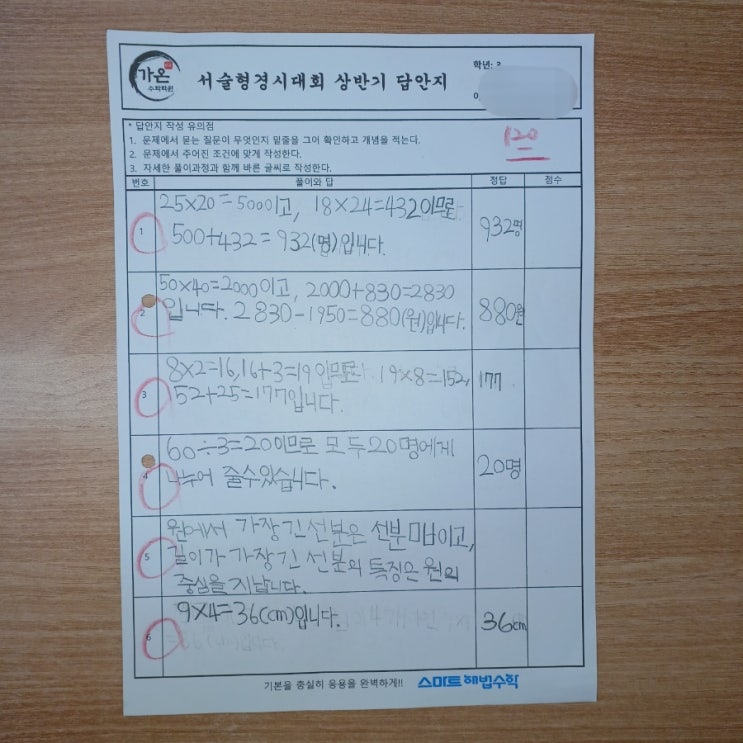 가온
수학학원
서술형경시대회 상반기 답안지
학년: 3
120
* 답안지 작성 유의점
1. 문제에서 묻는 질문이 무엇인지 밑줄을 그어 확인하고 개념을 적는다.
2. 문제에서 주어진 조건에 맞게 작성한다.
3. 자세한 풀이과정과 함께 바른 글씨로 작성한다.
번호 풀이와 답 정답 점수
1
25×20=500이고, 18×24=432이므로
500+432=932(명)입니다.
932명
2
50×40=2000이고, 2000+830=2830
입니다. 2830-1950=880(원)입니다.
880원
3
8×2=16, 16+3=19입므로 19×8=152,
152+25=177입니다.
177
4
60÷3=20이므로 모두 20명에게
나누어 줄수있습니다.
20명
5
원에서 가장 긴 선분은 선분 ㅁㅂ이고,
길이가 가장 긴 선분의 특징은 원의
중심을 지납니다.
6
9×4=36(cm)입니다.
36cm
기본을 충실히 응용을 완벽하게!! 스마트해법수학